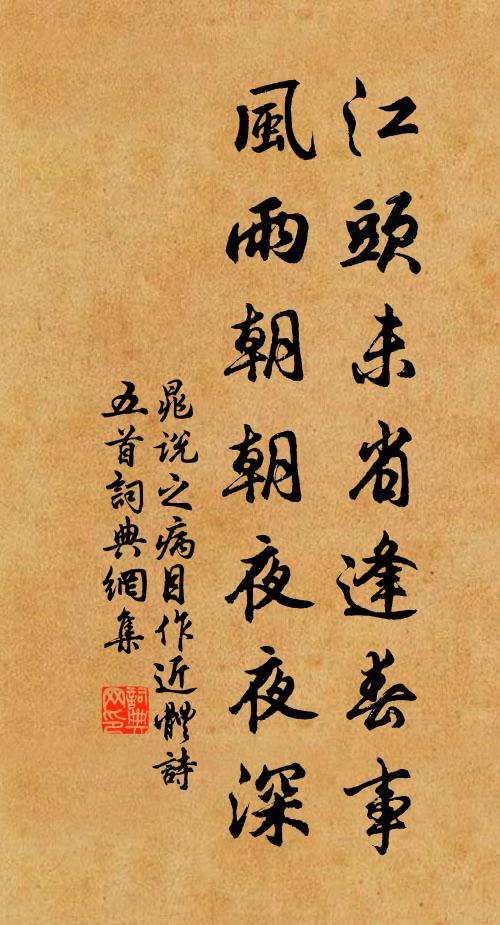 江頭未省逢春事
風雨朝朝夜夜深
晁說之病目作近體詩
五首詞典網集
詞典網印